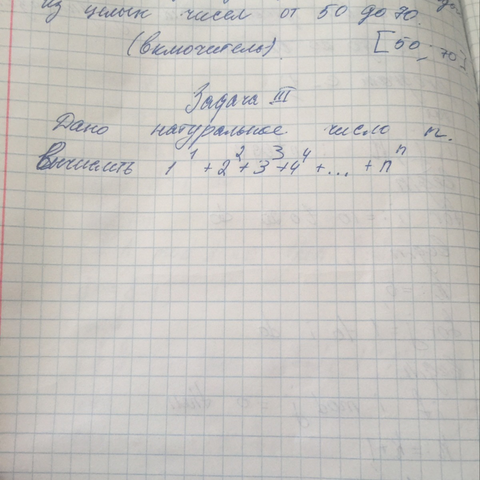 из целых чисел от 50 до 70.
(включитель) [50; 70]
Задача III
Дано натуральное число n.
Вычислить 1¹ + 2² + 3³ + 4⁴ + ... + nⁿ